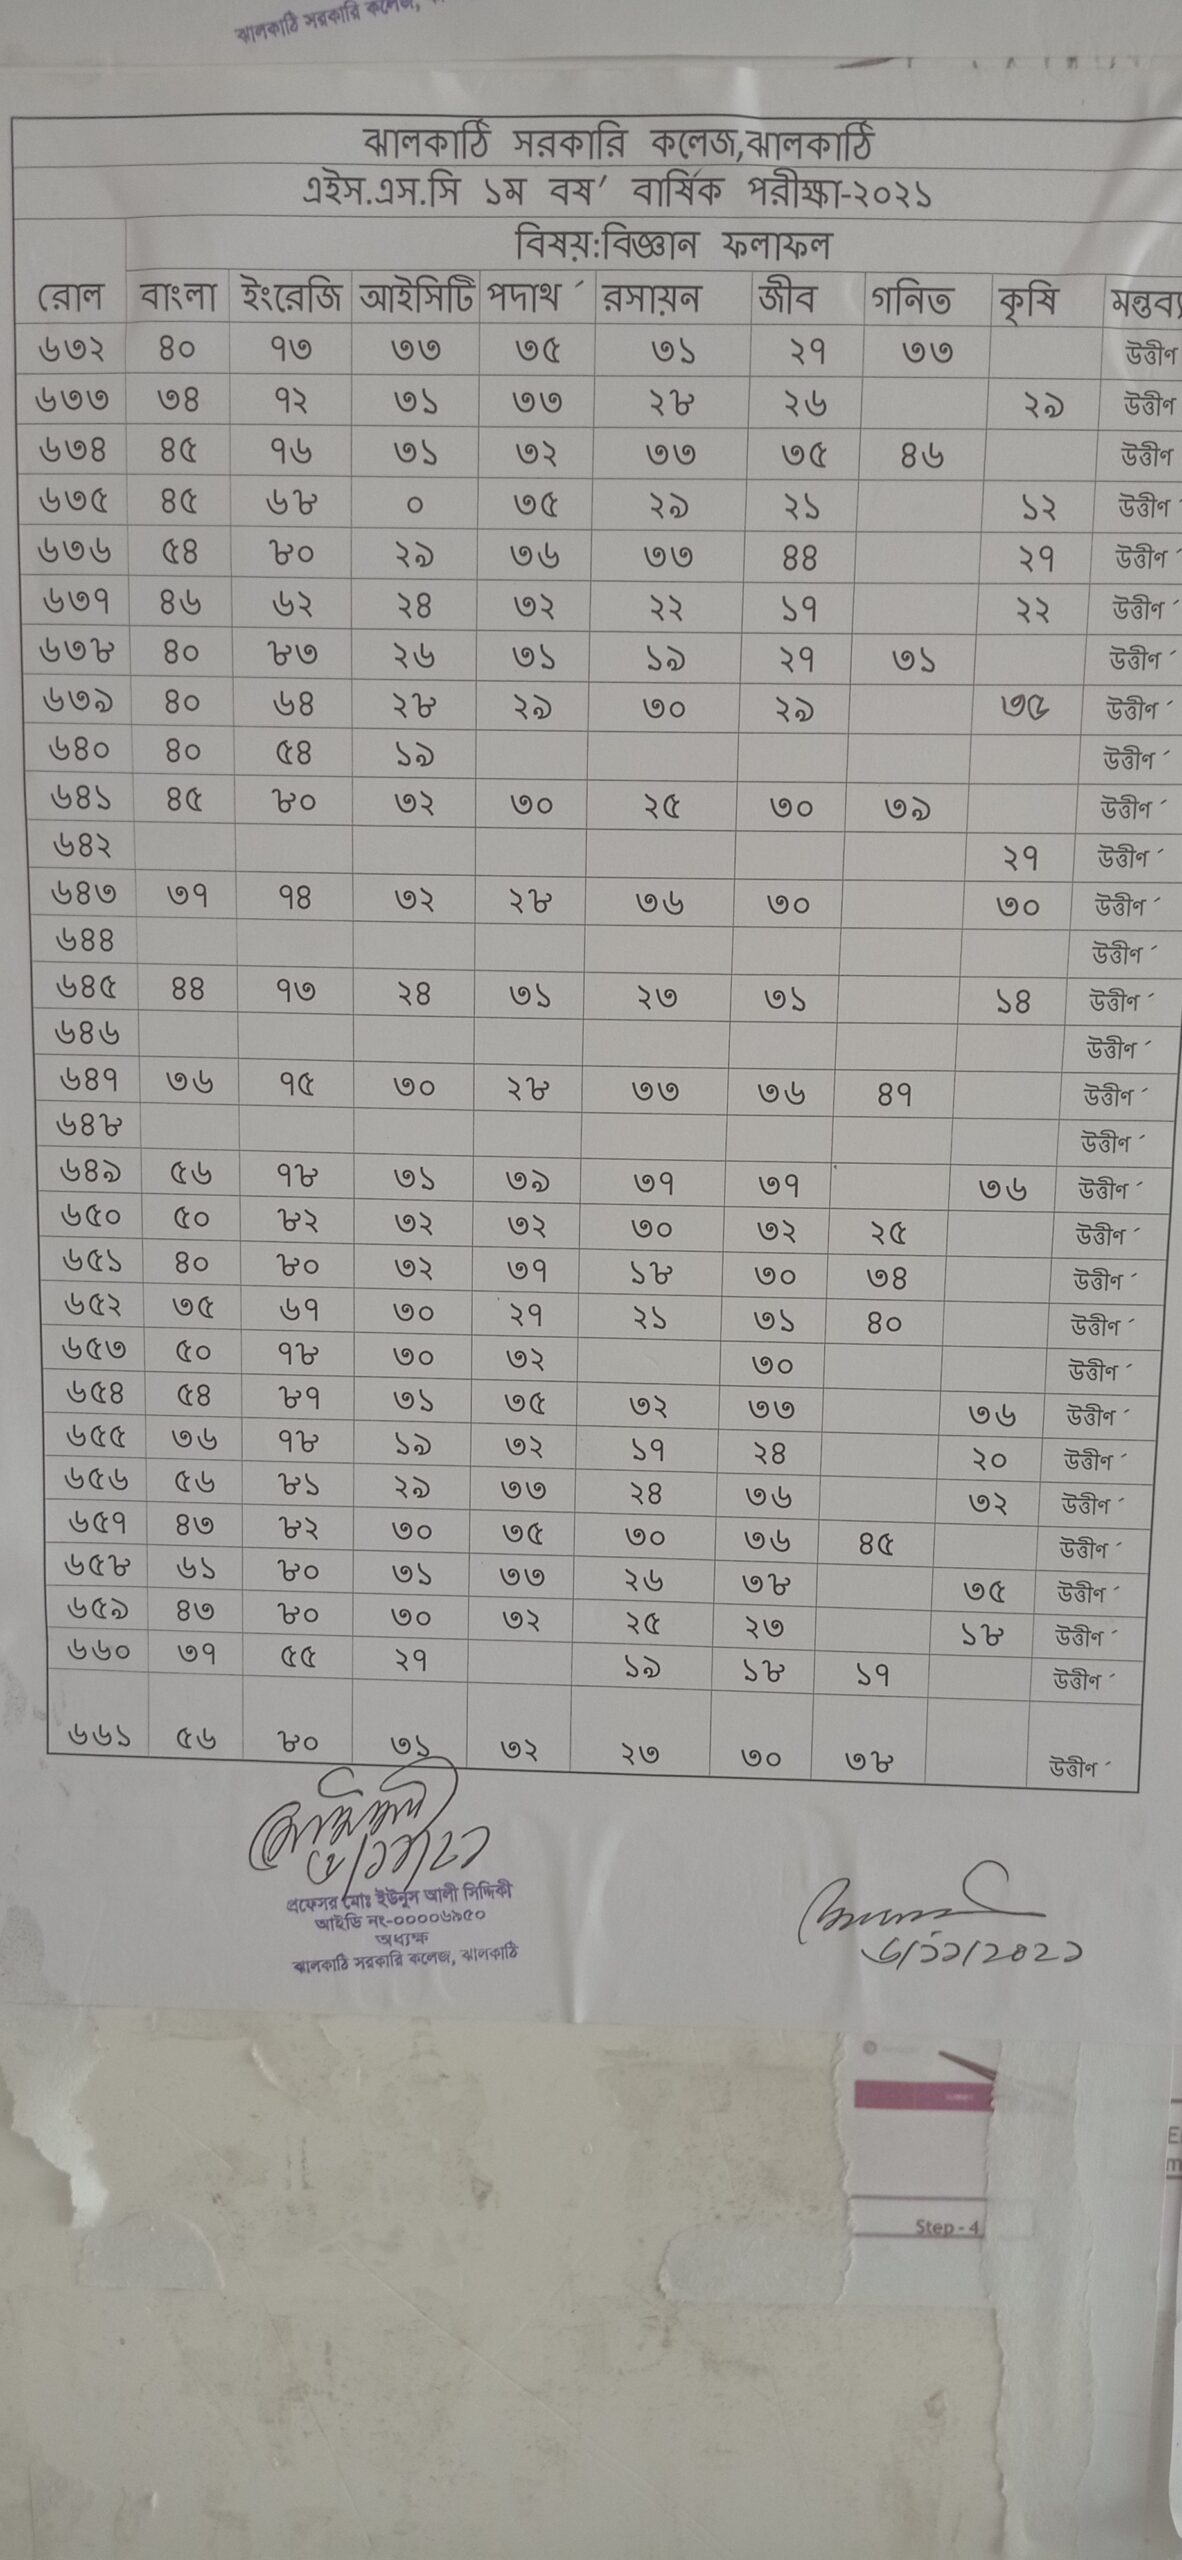 ঝালকাঠি সরকারি কলেজ,
ঝালকাঠি সরকারি কলেজ,ঝালকাঠি
এইস.এস.সি ১ম বর্ষ বার্ষিক পরীক্ষা-২০২১
বিষয়:বিজ্ঞান ফলাফল
রোল বাংলা ইংরেজি আইসিটি পদার্থ রসায়ন জীব গনিত কৃষি মন্তব্য
৬৩২ ৪০ ৭৩ ৩৩ ৩৫ ৩১ ২৭ ৩৩ উত্তীর্ণ
৬৩৩ ৩৪ ৭২ ৩১ ৩৩ ২৮ ২৬ ২৯ উত্তীর্ণ
৬৩৪ ৪৫ ৭৬ ৩১ ৩২ ৩৩ ৩৫ ৪৬ উত্তীর্ণ
৬৩৫ ৪৫ ৬৮ ০ ৩৫ ২৯ ২১ ১২ উত্তীর্ণ
৬৩৬ ৫৪ ৮০ ২৯ ৩৬ ৩৩ ৪৪ ২৭ উত্তীর্ণ
৬৩৭ ৪৬ ৬২ ২৪ ৩২ ২২ ১৭ ২২ উত্তীর্ণ
৬৩৮ ৪০ ৮৩ ২৬ ৩১ ১৯ ২৭ ৩১ উত্তীর্ণ
৬৩৯ ৪০ ৬৪ ২৮ ২৯ ৩০ ২৯ ৩৫ উত্তীর্ণ
৬৪০ ৪০ ৫৪ ১৯ উত্তীর্ণ
৬৪১ ৪৫ ৮০ ৩২ ৩০ ২৫ ৩০ ৩৯ উত্তীর্ণ
৬৪২ ২৭ উত্তীর্ণ
৬৪৩ ৩৭ ৭৪ ৩২ ২৮ ৩৬ ৩০ ৩০ উত্তীর্ণ
৬৪৪ উত্তীর্ণ
৬৪৫ ৪৪ ৭৩ ২৪ ৩১ ২৩ ৩১ ১৪ উত্তীর্ণ
৬৪৬ উত্তীর্ণ
৬৪৭ ৩৬ ৭৫ ৩০ ২৮ ৩৩ ৩৬ ৪৭ উত্তীর্ণ
৬৪৮ উত্তীর্ণ
৬৪৯ ৫৬ ৭৮ ৩১ ৩৯ ৩৭ ৩৭ ৩৬ উত্তীর্ণ
৬৫০ ৫০ ৮২ ৩২ ৩২ ৩০ ৩২ ২৫ উত্তীর্ণ
৬৫১ ৪০ ৮০ ৩২ ৩৭ ১৮ ৩০ ৩৪ উত্তীর্ণ
৬৫২ ৩৫ ৬৭ ৩০ ২৭ ২১ ৩১ ৪০ উত্তীর্ণ
৬৫৩ ৫০ ৭৮ ৩০ ৩২ ৩০ উত্তীর্ণ
৬৫৪ ৫৪ ৮৭ ৩১ ৩৫ ৩২ ৩৩ ৩৬ উত্তীর্ণ
৬৫৫ ৩৬ ৭৮ ১৯ ৩২ ১৭ ২৪ ২০ উত্তীর্ণ
৬৫৬ ৫৬ ৮১ ২৯ ৩৩ ২৪ ৩৬ ৩২ উত্তীর্ণ
৬৫৭ ৪৩ ৮২ ৩০ ৩৫ ৩০ ৩৬ ৪৫ উত্তীর্ণ
৬৫৮ ৬১ ৮০ ৩১ ৩৩ ২৬ ৩৮ ৩৫ উত্তীর্ণ
৬৫৯ ৪৩ ৮০ ৩০ ৩২ ২৫ ২৩ ১৮ উত্তীর্ণ
৬৬০ ৩৭ ৫৫ ২৭ ১৯ ১৮ ১৭ উত্তীর্ণ
৬৬১ ৫৬ ৮০ ৩১ ৩২ ২৩ ৩০ ৩৮ উত্তীর্ণ
৬/১১/২০২১
প্রফেসর মোঃ ইউনুস আলী সিদ্দিকী
আইডি নং-০০০০৬৯৫০
অধ্যক্ষ
ঝালকাঠি সরকারি কলেজ, ঝালকাঠি
Step - 4